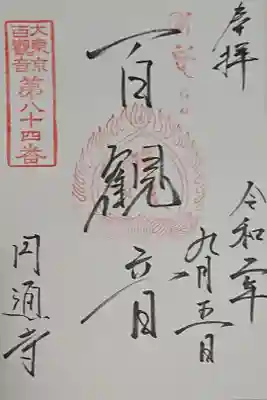 奉拝
令和二年
九月五日
百觀音
円通寺
大東京
百觀音
第八十四番